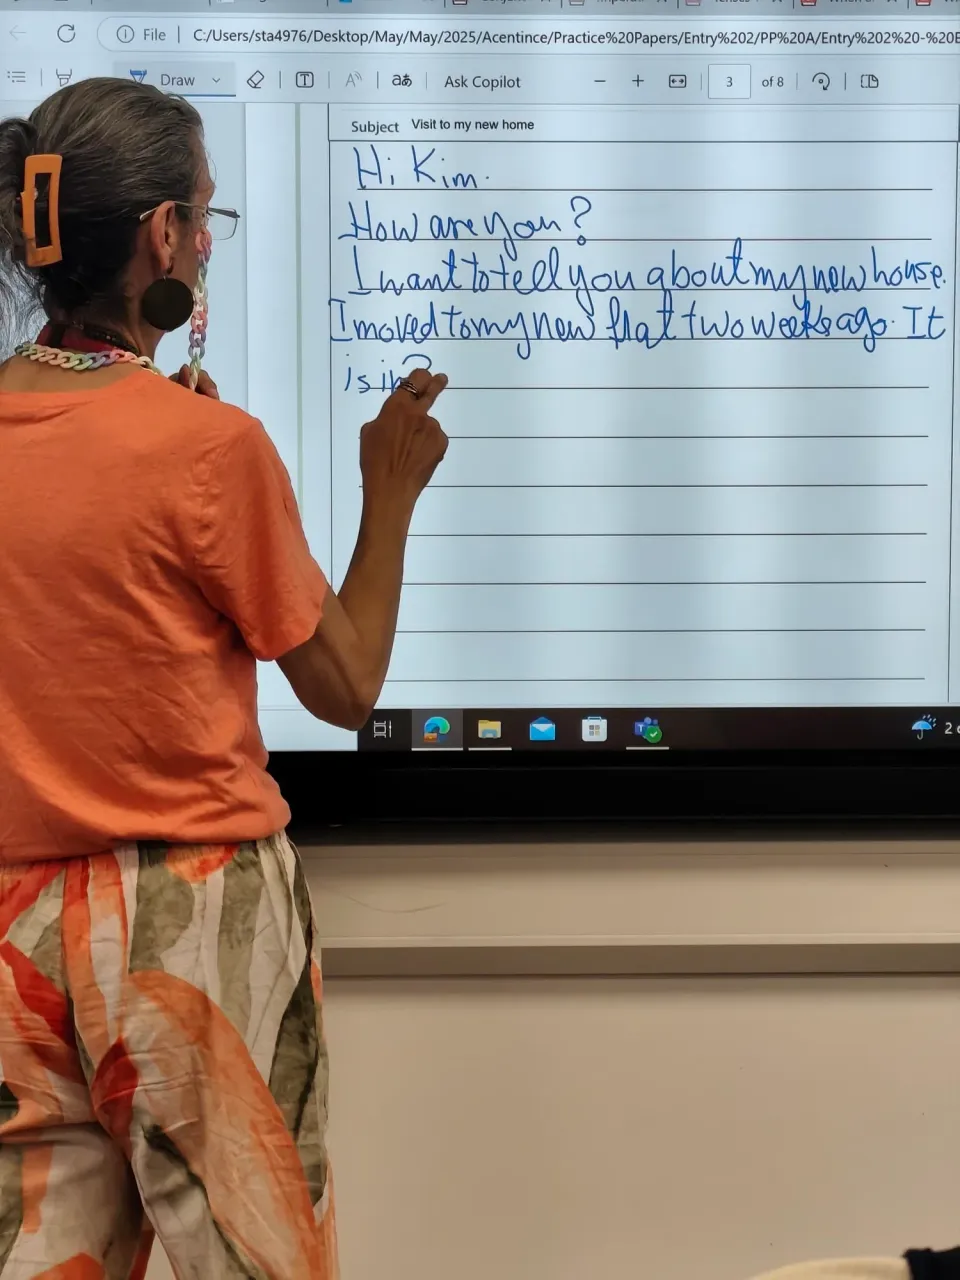 File | C:/Users/sta4976/Desktop/May/May/2025/Acentince/Practice%20Papers/Entry%202/PP%20A/Entry%202%20-%20E
Draw aあ Ask Copilot − + 3 of 8
Subject Visit to my new home
Hi Kim.
How are you?
I want to tell you about my new house.
I moved to my new flat two weeks ago. It
is in